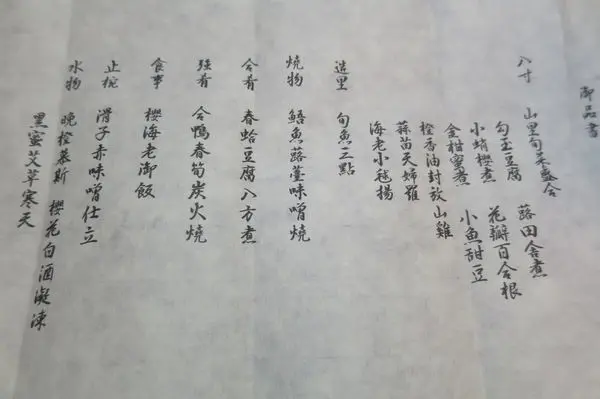 御品書
八寸 山里旬菜盛合
勾玉豆腐 蕗田舎煮
小蛸櫻煮 花瓣百合根
金柑蜜煮 小魚甜豆
橙香油封放山雞
蒜苗天婦羅
海老小毬揚
造里 旬魚三點
燒物 鰆魚蕗薹味噌燒
合肴 春蛤豆腐八方煮
强肴 合鴨春筍炭火燒
食事 櫻海老御飯
止椀 滑子赤味噌仕立
水物 晚橙慕斯 櫻花白酒凝凍
黑蜜艾草寒天